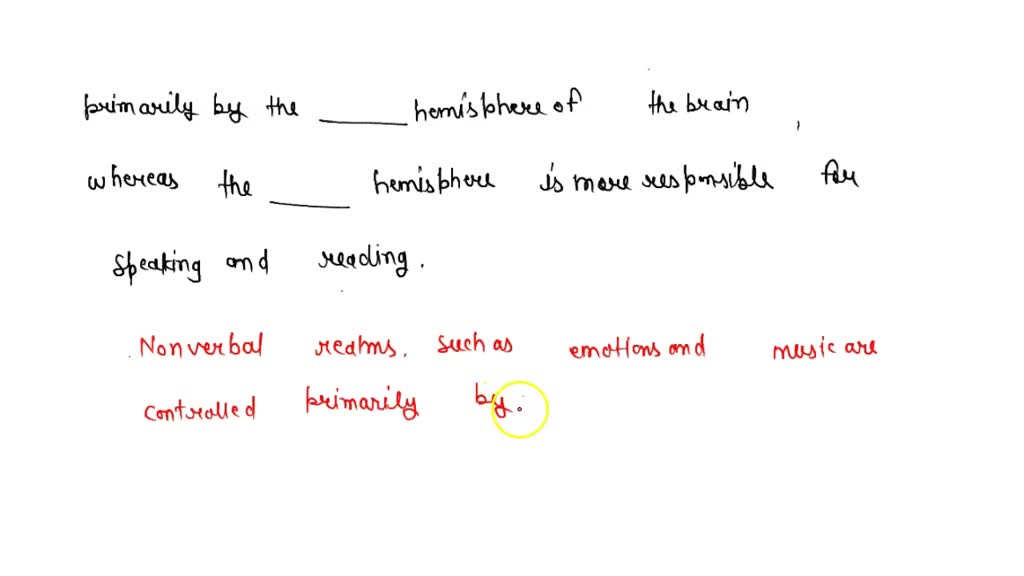 primarily by the ______ hemisphere of the brain,
whereas the ______ hemisphere is more responsible for
speaking and reading.
Nonverbal realms, such as emotions and music are
controlled primarily by.